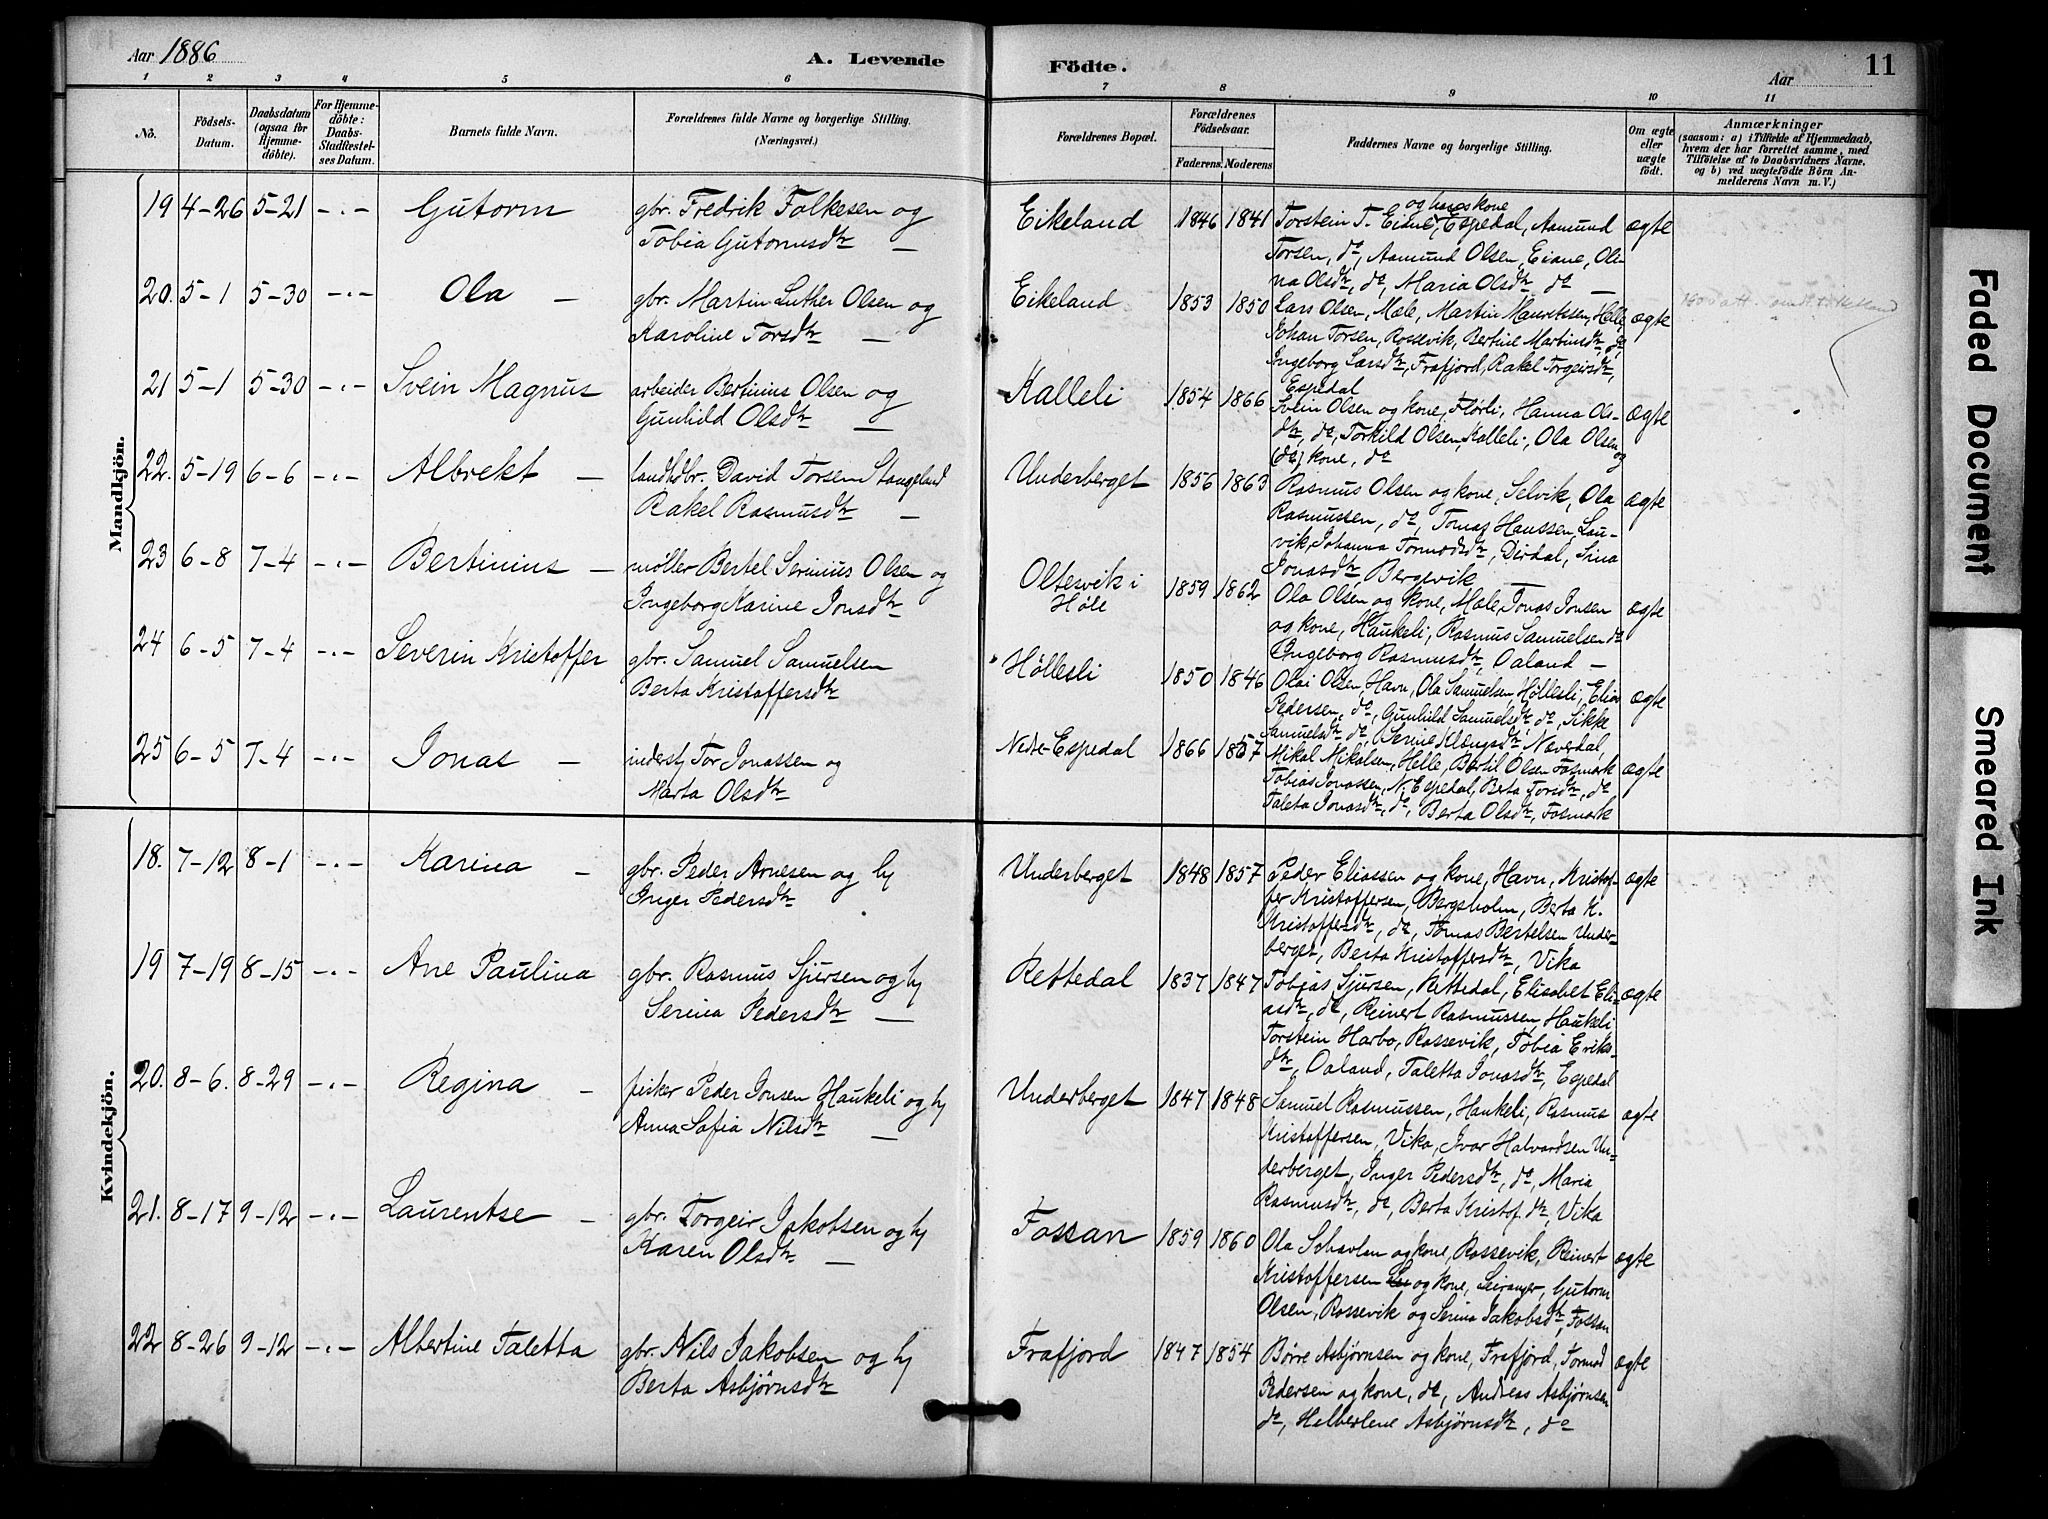 Aar 1886
A. Levende
Födte.
Aar
11
1 2 3 4 5 6 7 8 9 10 11
No.
Födsels-Datum.
Daabsdatum (ogsaa for Hjemme-döbte).
For Hjemme-döbte: Daabs-Stadfæstelses Datum.
Barnets fulde Navn.
Forældrenes fulde Navne og borgerlige Stilling. (Næringsvei.)
Forældrenes Bopæl.
Forældrenes Födselsaar.
Faderens. Moderens.
Faddernes Navne og borgerlige Stilling.
Om ægte eller uægte födt.
Anmærkninger
(saasom: a) i Tilfælde af Hjemmedaab, hvem der har forrettet samme, med Tilföielse af to Daabsvidners Navne, og b) ved uægtefödte Börn Anmelderens Navn m. V.)
Mandkjön.
19 4-26 5-21 -"- Gutorm gbr. Fredrik Folkesen og Tobia Gutormsdtr — Eikeland 1846 1841 Torstein T. Eiane og hans kone, Espedal, Aamund Torsen, do, Aamund Olsen, Eiane, Olena Olsdtr, do, Maria Olsdtr, do — ægte
20. 5-1 5-30 -"- Ola — gbr. Martin Luther Olsen og Karoline Torsdtr — Eikeland 1853 1850 Lars Olsen, Mæle, Martin Mauritssen, Helle, Johan Torsen, Rossevik, Bertine Martinsdtr, do, Ingeborg Larsdtr, Frafjord, Rakel Torgeirsdtr, Espedal ægte
21 5-1 5-30 -"- Svein Magnus arbeider Bertinius Olsen og Gunhild Olsdtr — Kalleli 1854 1866 Svein Olsen og kone, Flørli, Hanna Olsdtr, do, Torkild Olsen, Kalleli, Ola Olsen og (do) kone, do ægte
22. 5-19 6-6 -"- Albrekt — landhdbr. David Torsen Stangeland Rakel Rasmusdtr — Underberget 1856 1863 Rasmus Olsen og kone, Selvik, Ola Rasmussen, do, Tomas Hanssen, Lauvik, Johanna Tormodsdtr, Dirdal, Sina Jonasdtr, Bergevik — ægte
23 6-8 7-4 -"- Bertinius — møller Bertel Serinius Olsen og Ingeborg Karine Jonsdtr Oltesvik i Høle 1859 1862 Ola Olsen og kone, Mæle, Jonas Jonsen og kone, Haukeli, Rasmus Samuelsen do Ingeborg Rasmusdtr, Oaland — ægte
24 6-5 7-4 -"- Severin Kristoffer gbr. Samuel Samuelsen Berta Kristoffersdtr Høllesli 1850 1846 Olai Olsen, Havn, Ola Samuelsen, Høllesli, Elias Pedersen, do, Gunhild Samuelsdtr, do, Sikke Samuelsdtr, do, Serine Klengsdtr, Nævedal, ægte
25 6-5 7-4 -"- Jonas — inderst Tor Jonassen og Marta Olsdtr Nedre-Espedal 1866 1857 Mikal Mikalsen, Helle, Bertil Olsen Fosmark Tobias Jonassen, N. Espedal, Berta Torsdtr, do Taleta Jonasdtr, do, Berta Olsdtr, Fosmark ægte
Kvindekjön.
18. 7-12 8-1 -"- Karina — gbr. Peder Arnesen og h. Inger Pedersdtr Underberget 1848 1857 Peder Eliassen og kone, Havn, Kristoffer Kristoffersen, Bergsholm, Berta K. Kristoffersdtr, do, Tomas Bertelsen Underberget, Berta Kristoffersdtr, Vika ægte
19 7-19 8-15 -"- Ane Paulina gbr. Rasmus Sjursen og h. Serina Pedersdtr — Rettedal 1837 1847 Tobias Sjursen, Rettedal, Elisabet Eliasdtr, do, Reinert Rasmussen, Haukeli Torstein Harbo, Rossevik, Tobia Eriksdtr, Oaland, Taletta Jonasdtr, Espedal ægte
20. 8-6. 8-29 -"- Regina — fisker Peder Jonsen Haukeli og h. Anna Sofia Nilsdtr — Underberget 1847 1848 Samuel Rasmussen, Haukeli, Rasmus Kristoffersen, Vika, Ivar Halvardsen Underberget, Inger Pedersdtr, do, Maria Rasmusdtr, do, Berta Kristof.dtr, Vika ægte
21. 8-17 9-12 -"- Laurentse — gbr. Torgeir Jakobsen og h. Karen Olsdtr — Fossan 1859 1860 Ola Schavlan og kone, Rossevik, Reinert Kristoffersen og kone, Leiranger, Gutorm Olsen, Rossevik og Serina Jakobsdtr, Fossan ægte
22 8-26 9-12 -"- Albertine Taletta gbr. Nils Jakobsen og h. Berta Asbjørnsdtr Frafjord 1847 1854 Børre Asbjørnsen og kone, Frafjord, Tormod Pedersen og kone, do, Andreas Asbjørnsen do, Helberlene Asbjørnsdtr, do ægte
Faded Document
Smeared Ink